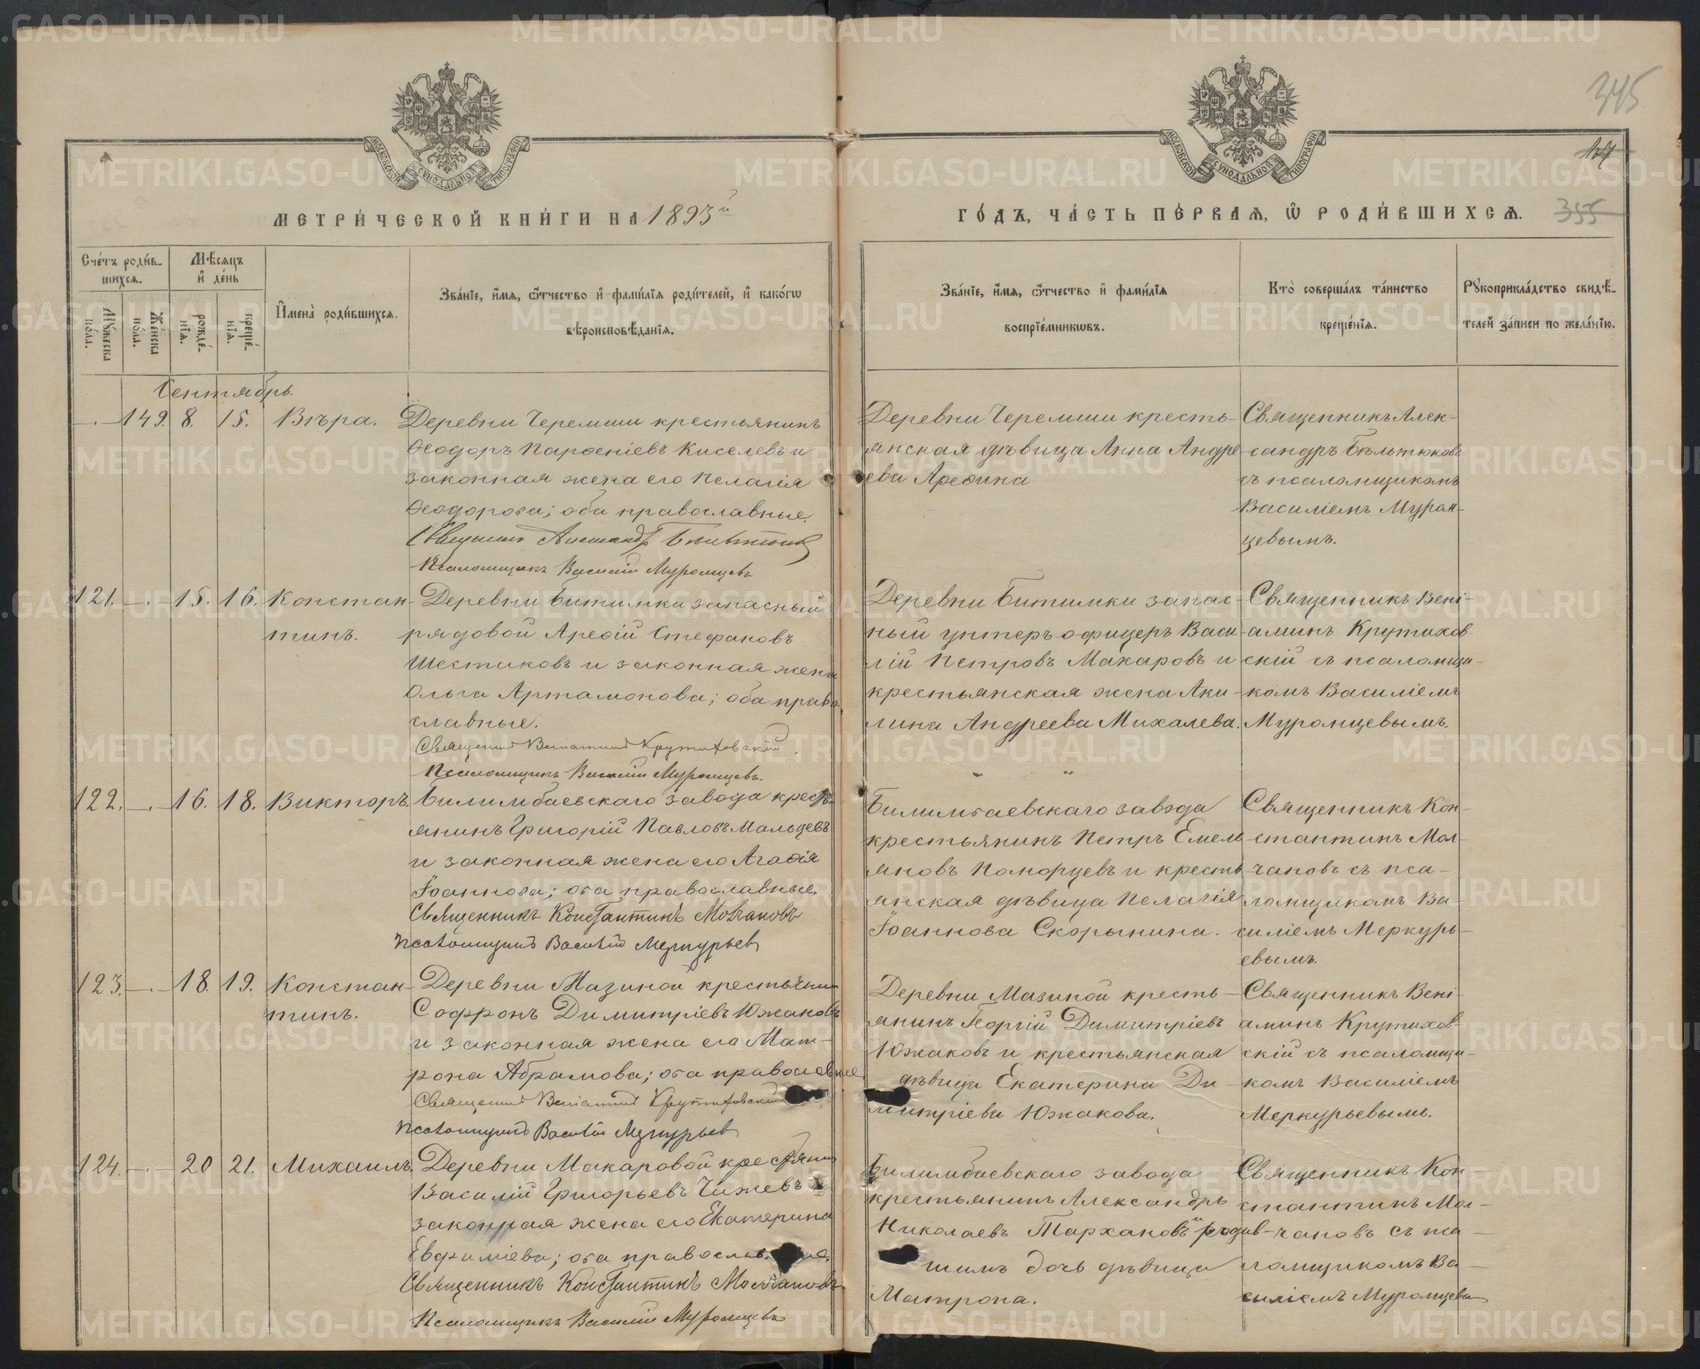 345
МОСКОВСКОЙ СѴНОДАЛЬНОЙ ТИПОГРАФІИ
МОСКОВСКОЙ СѴНОДАЛЬНОЙ ТИПОГРАФІИ
МЕТРИ́ЧЕСКОЙ КНИ́ГИ НА 1893й
ГО́ДЪ, ЧА́СТЬ ПЕ́РВАЯ, Ѿ РОДИ́ВШИХСЯ.
355
Сче́тъ роди́в-
шихся.
Мꙋжеска по́ла.
Же́нска по́ла.
Мѣ́сяцъ
и҆ де́нь
рожде́-
нїя.
креще́-
нїя.
И҆мена̀ роди́вшихся.
Зва́нїе, и҆́мя, ѻ҆́тчество и҆ фами́лїя роди́телей, и҆ како́гѡ
вѣроисповѣ́данїя.
Зва́нїе, и҆́мя, ѻ҆́тчество и҆ фами́лїя
воспрїе́мникѡвъ.
Кто̀ соверша́лъ та́инство
креще́нїя.
Рꙋкоприкла́дство свидѣ́-
телей за́писи по жела́нїю.
Сентябрь.
149. 8. 15. Вѣра.
Деревни Черемши крестьянинъ
Ѳеодоръ Парѳеніевъ Киселевъ и
законная жена его Пелагія
Ѳеодорова; оба православные.
Священникъ Александръ Бѣльтюковъ
Псаломщикъ Василій Муромцевъ
Деревни Черемши кресть-
янская дѣвица Анна Андре-
ева Ареѳина
Священникъ Алек-
сандръ Бѣльтюковъ
съ псаломщикомъ
Василіемъ Муром-
цевымъ.
121. 15. 16. Констан-
тинъ.
Деревни Битимки запасный
рядовой Ареѳій Стефановъ
Шестаковъ и законная жена
Ольга Артамонова; оба право-
славные.
Священникъ Веніаминъ Крутиховскій.
Псаломщикъ Василій Муромцевъ.
Деревни Битимки запас-
ный унтеръ офицеръ Васи-
лій Петровъ Макаровъ и
крестьянская жена Аки-
лина Андреева Михалева.
Священникъ Вені-
аминъ Крутихов-
скій съ псаломщи-
комъ Василіемъ
Муромцевымъ.
122. 16. 18. Викторъ.
Билимбаевскаго завода кресть-
янинъ Григорій Павловъ Мальцевъ
и законная жена его Агаѳія
Іоаннова; оба православные.
Священникъ Константинъ Молчановъ
Псаломщикъ Василій Меркурьев
Билимбаевскаго завода
крестьянинъ Петръ Емель-
яновъ Поморцевъ и кресть-
янская дѣвица Пелагія
Іоаннова Скорынина.
Священникъ Кон-
стантинъ Мол-
чановъ съ пса-
ломщикомъ Ва-
силіемъ Меркурь-
евымъ.
123. 18. 19. Констан-
тинъ.
Деревни Мазиной крестьянинъ
Софронъ Димитріевъ Южаковъ
и законная жена его Мат-
рона Абрамова; оба православные
Священникъ Веніаминъ Крутиховскій
Псаломщикъ Василій Меркурьев
Деревни Мазиной кресть-
янинъ Георгій Димитріевъ
Южаковъ и крестьянская
дѣвица Екатерина Ди-
митріева Южакова.
Священникъ Вені-
аминъ Крутихов-
скій съ псаломщи-
комъ Василіемъ
Меркурьевымъ.
124. 20 21. Михаилъ.
Деревни Макаровой крестьянинъ
Василій Григорьевъ Чижевъ и
законная жена его Екатерина
Евфиміева; оба православные.
Священникъ Константинъ Молчановъ
Псаломщикъ Василій Муромцевъ
Билимбаевскаго завода
крестьянинъ Александръ
Николаевъ Тархановъ и родив-
шимъ дочь дѣвица
Матрона.
Священникъ Кон-
стантинъ Мол-
чановъ съ пса-
ломщикомъ Ва-
силіемъ Муромцевым
METRIKI.GASO-URAL.RU